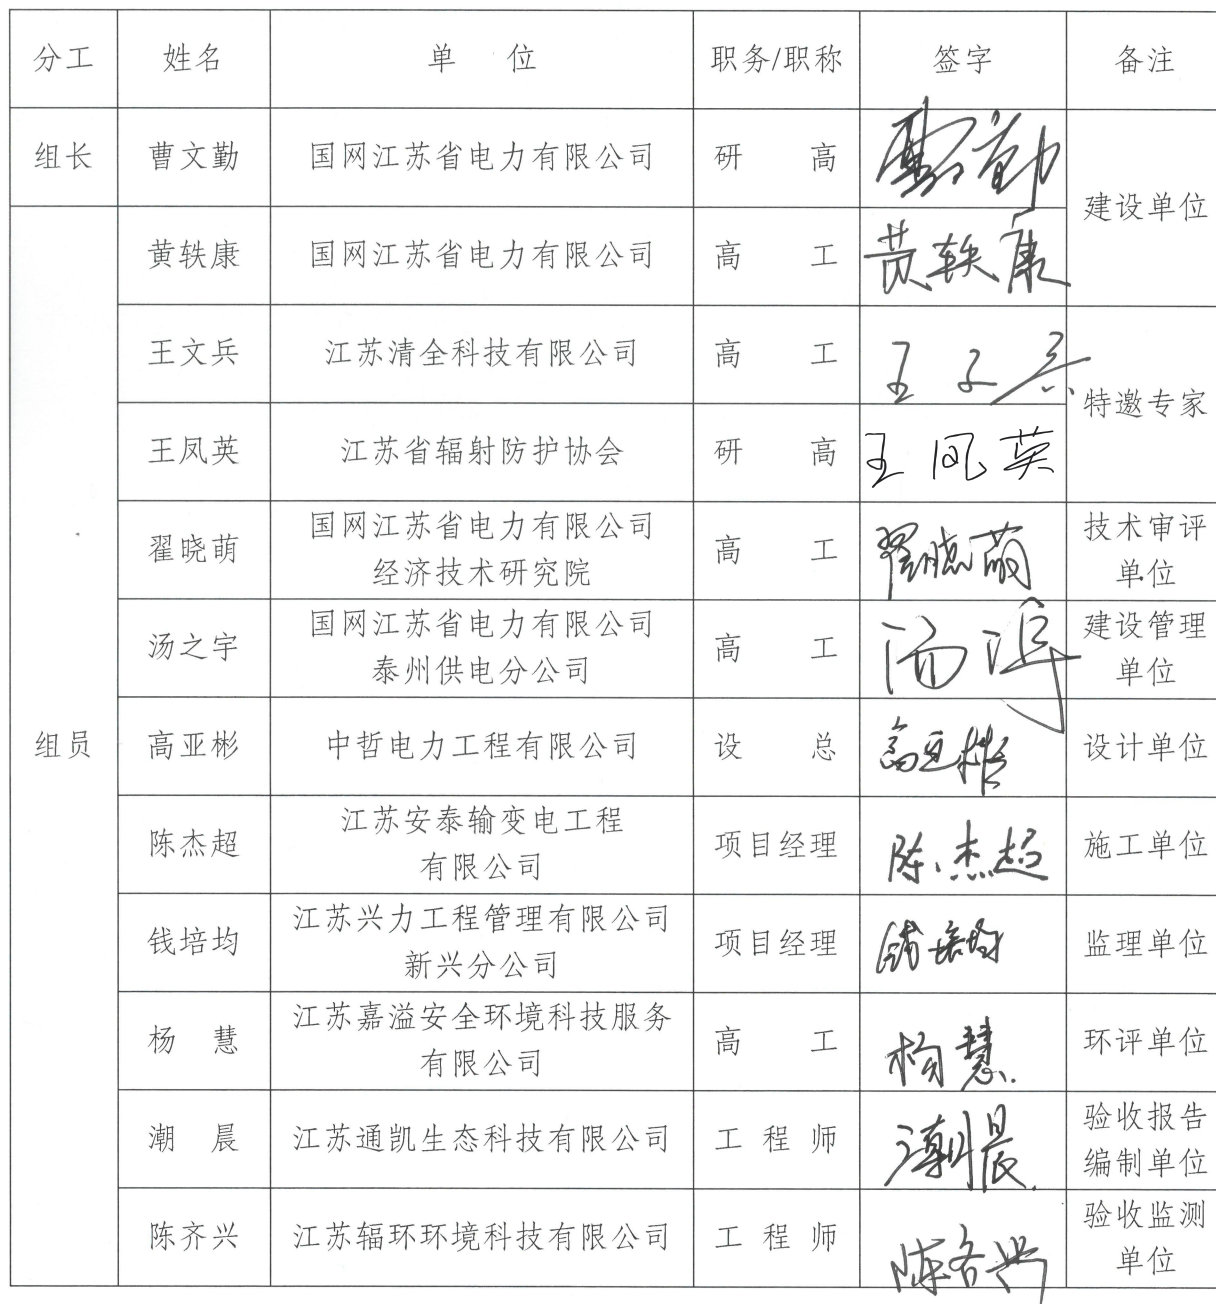 分工 姓名 单 位 职务/职称 签字 备注
组长 曹文勤 国网江苏省电力有限公司 研 高
建设单位
黄轶康 国网江苏省电力有限公司 高 工 黄轶康
王文兵 江苏清全科技有限公司 高 工 王文兵
特邀专家
王凤英 江苏省辐射防护协会 研 高 王凤英
翟晓萌 国网江苏省电力有限公司
经济技术研究院 高 工 翟晓萌 技术审评
单位
汤之宇 国网江苏省电力有限公司
泰州供电分公司 高 工 建设管理
单位
组员 高亚彬 中哲电力工程有限公司 设 总 高亚彬 设计单位
陈杰超 江苏安泰输变电工程
有限公司 项目经理 陈杰超 施工单位
钱培均 江苏兴力工程管理有限公司
新兴分公司 项目经理 钱培均 监理单位
杨 慧 江苏嘉溢安全环境科技服务
有限公司 高 工 杨慧 环评单位
潮 晨 江苏通凯生态科技有限公司 工 程 师 潮晨 验收报告
编制单位
陈齐兴 江苏辐环环境科技有限公司 工 程 师 陈齐兴 验收监测
单位